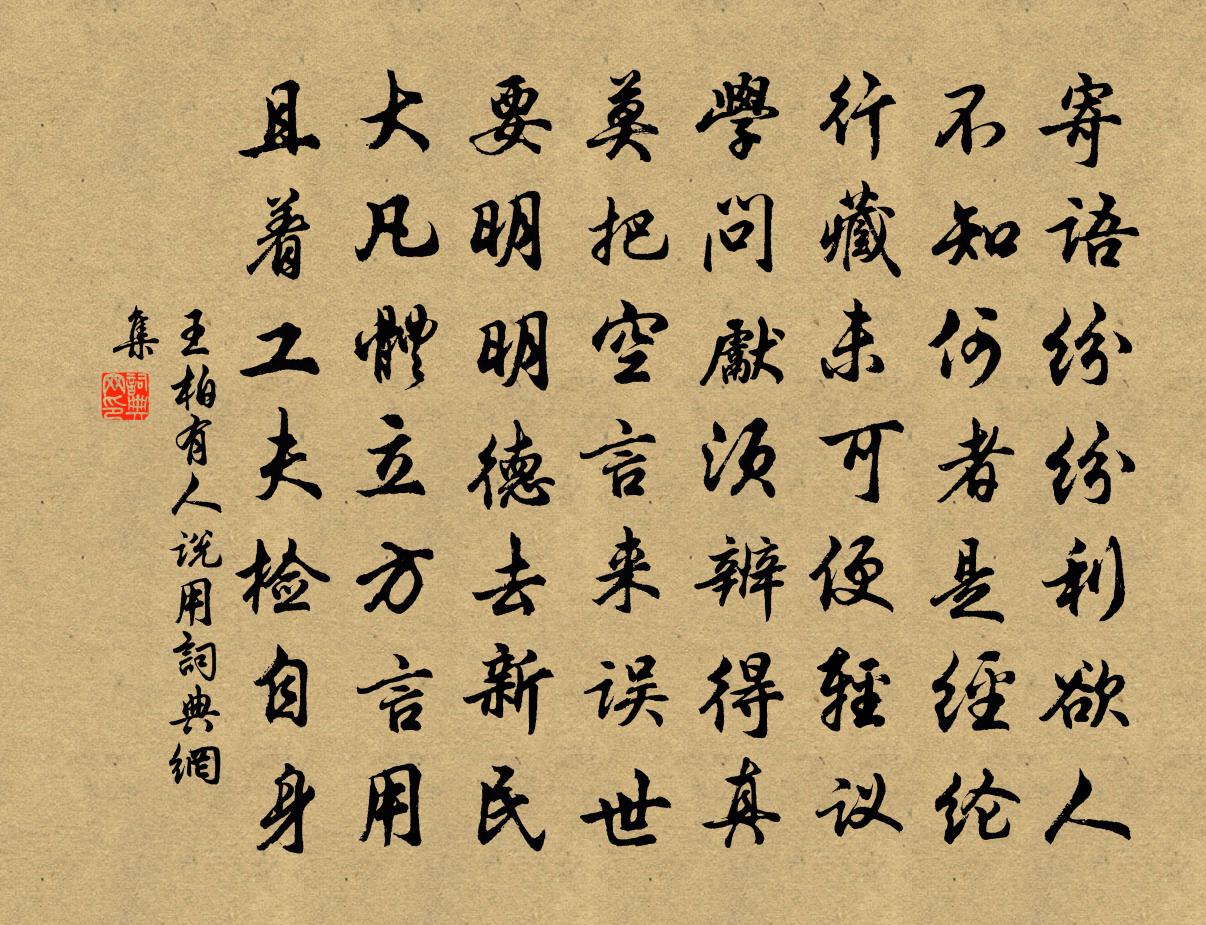 寄語紛紛利欲人
不知何者是經纶
行藏未可便輕议
學問嚴须辨得真
莫把空言来误世
要明明德去新民
大凡體立方言用
且着工夫检自身
王柏有人说用詞典網
集